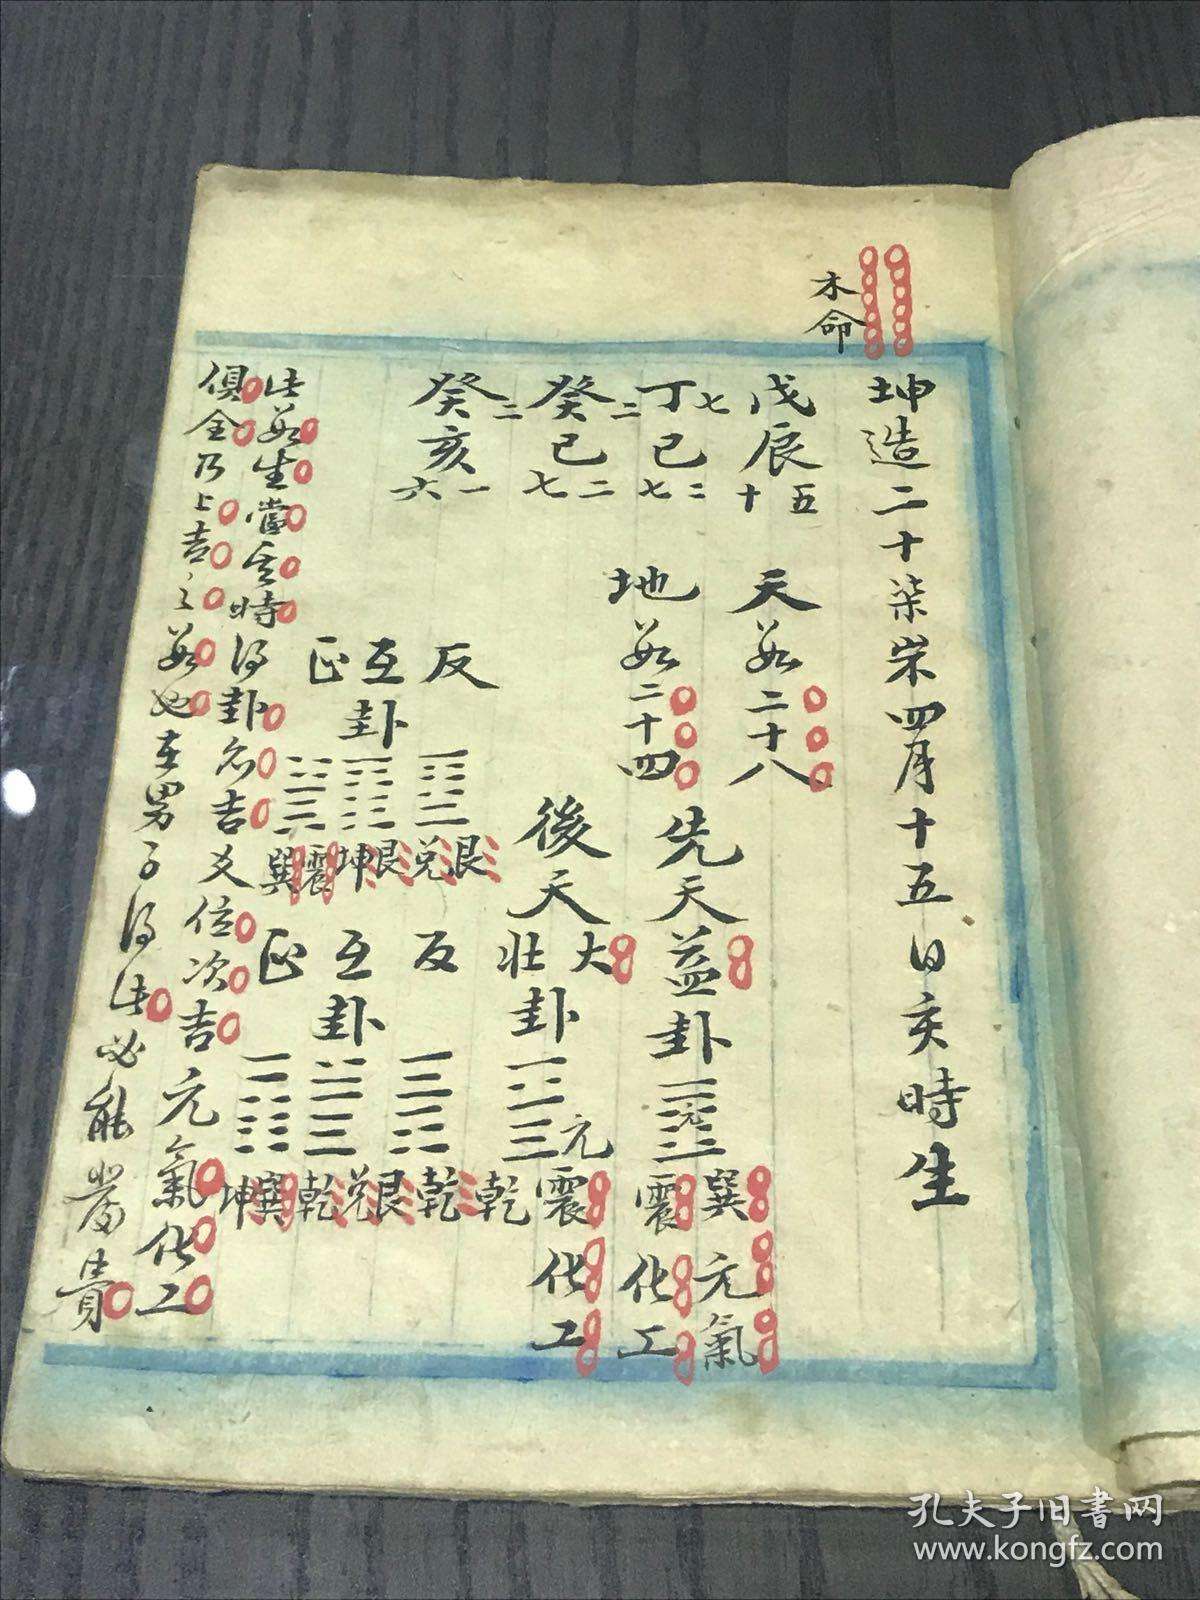 木命
坤造二十柒岁四月十五日亥時生
戊辰 五十
丁七巳 二七
癸二巳 二七
癸二亥 一六
天数二十八
地数二十四
先天益卦 元 巽震 元氣 化工
後天大壮卦 元 震乾 化工
反 艮兑
互卦 艮坤
正 震巽
反 乾
互卦 兑乾
正 巽坤
此数生當其時得卦名吉爻位次吉元氣化工
俱全乃上吉之数也在男子得此必能當貴
孔夫子旧书网
www.kongfz.com